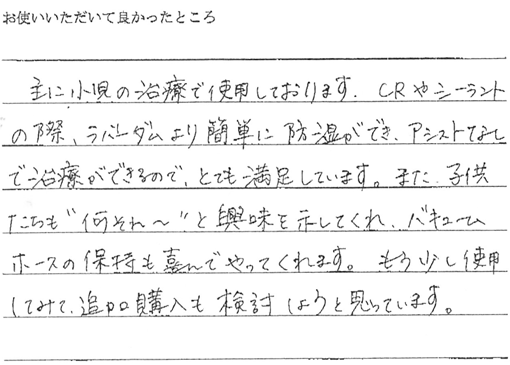 お使いいただいて良かったところ
主に小児の治療で使用しております。CRやシーラント
の際、ラバーダムより簡単に防湿ができ、アシストなし
で治療ができるので、とても満足しています。また、子供
たちも"何それ～"と興味を示してくれ、バキューム
ホースの保持も喜んでやってくれます。もう少し使用
してみて、追加購入も検討しようと思っています。